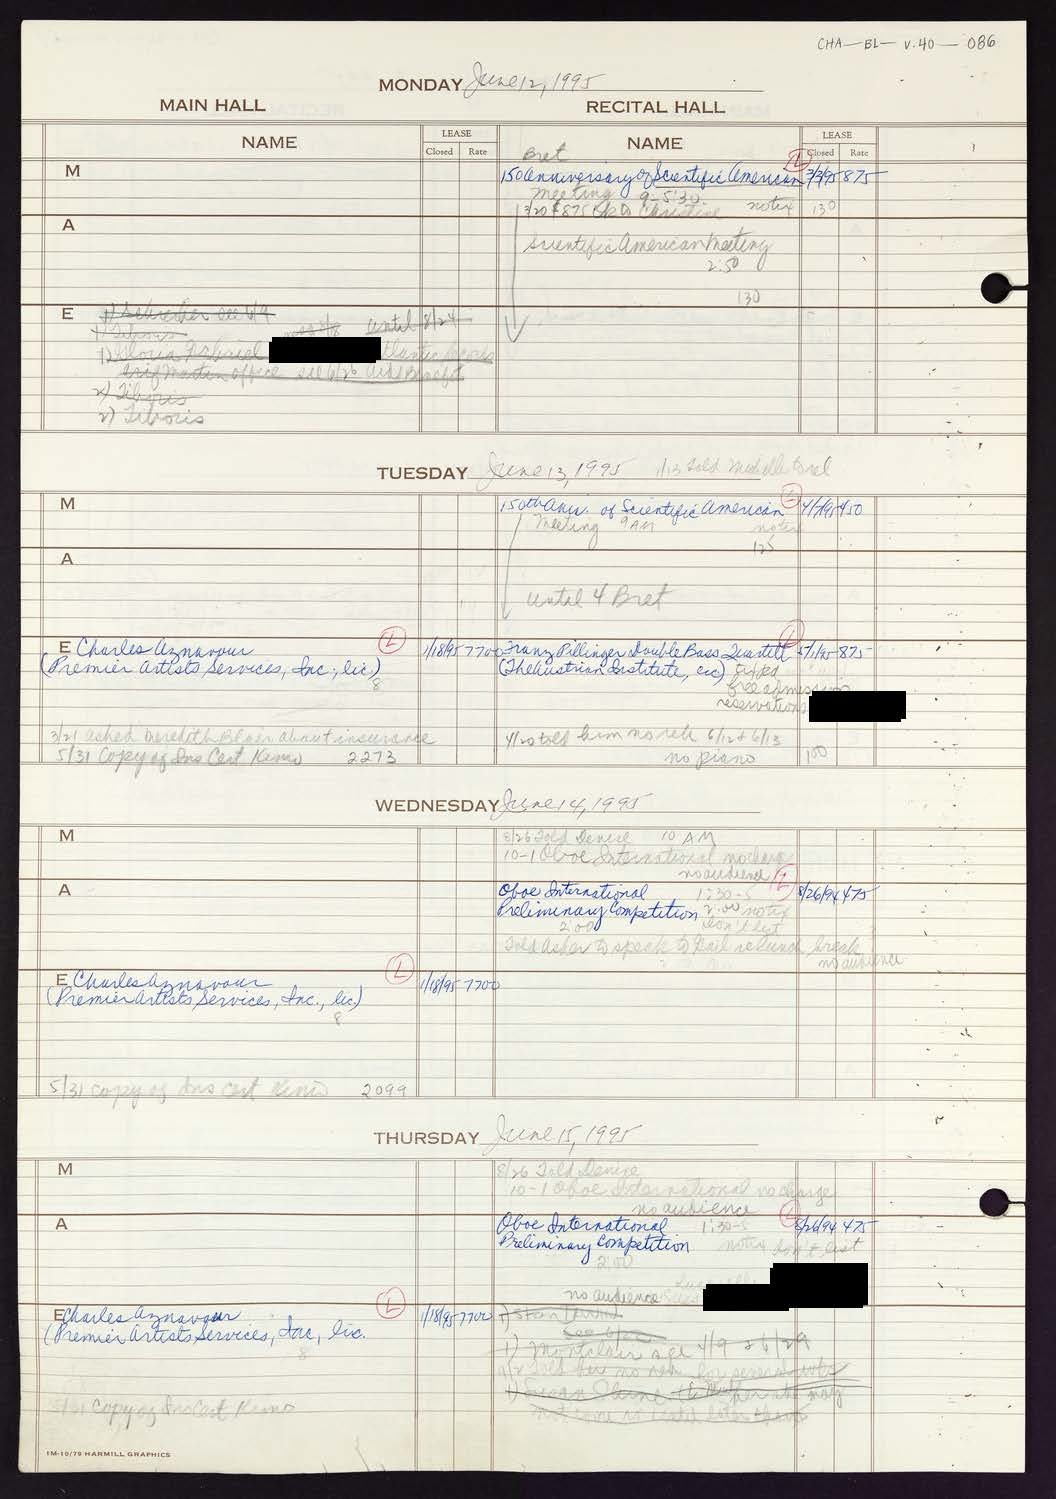 CHA-BL-V.40-086
MONDAY June 12, 1995
MAIN HALL
RECITAL HALL
NAME
LEASE
Closed Rate
NAME
LEASE
Closed Rate
M
Bret
150 Anniversary of Scientific American L 3/3/95 875
Meeting 9-5:30
3/20 $875 OK to Christine notix 130
A
Scientific American Meeting
2:50
130
E
1) Schreiber see 6/9
1) Tiboris until 8/24
1) Gloria Gabriel
office see 6/26 Benefit
2) Tiboris
2) Tiboris
TUESDAY June 13, 1995 1/13 Told Michelle Bret
M
150th Aniv. of Scientific American L 4/7/95 450
Meeting 9AM notix
125
A
until 4 Bret
E Charles Aznavour L 1/18/95 7700
(Premier Artists Services, Inc., lic)
8
3/21 asked Meredith about insurance
5/31 Copy of Ins Cert Kemo 2273
Franz Pillinger Double Bass Quartett L 5/1/95 875
(The Austrian Institute, lic) tixfed
free admission
reservations
4/20 told him no reh 6/12 & 6/13
no piano 100
WEDNESDAY June 14, 1995
M
8/26 Told Denise 10 AM
10-1 Oboe International no charge
no audience
A
Oboe International 1:30-5 L 8/26/94 475
Preliminary Competition 2:00 notix
2:00 don't list
Told Asher to speak to Gail re lunch break
no audience
E Charles Aznavour L 1/18/95 7700
(Premier Artists Services, Inc., lic.)
8
5/31 copy of Ins Cert Kemo 2099
THURSDAY June 15, 1995
M
8/26 Told Denise
10-1 Oboe International no charge
no audience
A
Oboe International 1:30-5 L 8/26/94 475
Preliminary Competition notix don't list
2:00
no audience
E Charles Aznavour L 1/18/95 7700
(Premier Artists Services, Inc., lic.
8
5/31 Copy of Ins Cert Kemo
1) Stan
see
1) Montclair see 4/9 & 6/29
Told her no
1) Susan
not come
1M-10/79 HARMILL GRAPHICS